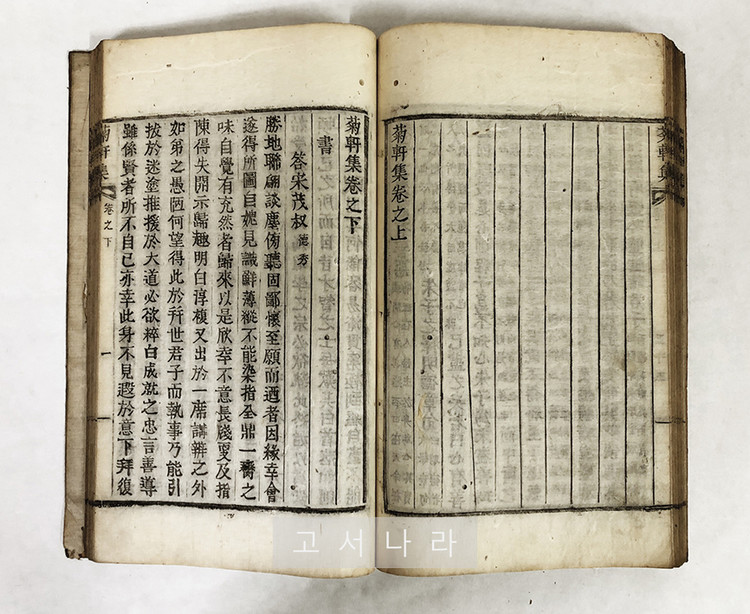 菊軒集卷之上
菊軒集
菊軒集卷之下
書
答宋茂叔 德秀
勝地聯翩談麈傍聽固鄙懷至願而迺者因緣幸會
遂得所圖自媿見識鮮薄縱不能染指全鼎一臠之
味自覺有充然者歸來以是欣幸不意長牋更及指
陳得失開示歸趣明白諄複又出於一席講辨之外
如弟之愚陋何望得此於幷世君子而執事乃能引
拔於迷塗推援於大道必欲粹白成就之忠言善導
雖係賢者所不自已亦幸此身不見遐於意下拜復
菊軒集
卷之下
一
고서나라